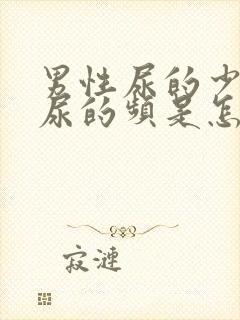 男性尿的少
尿的频是怎
寂涟